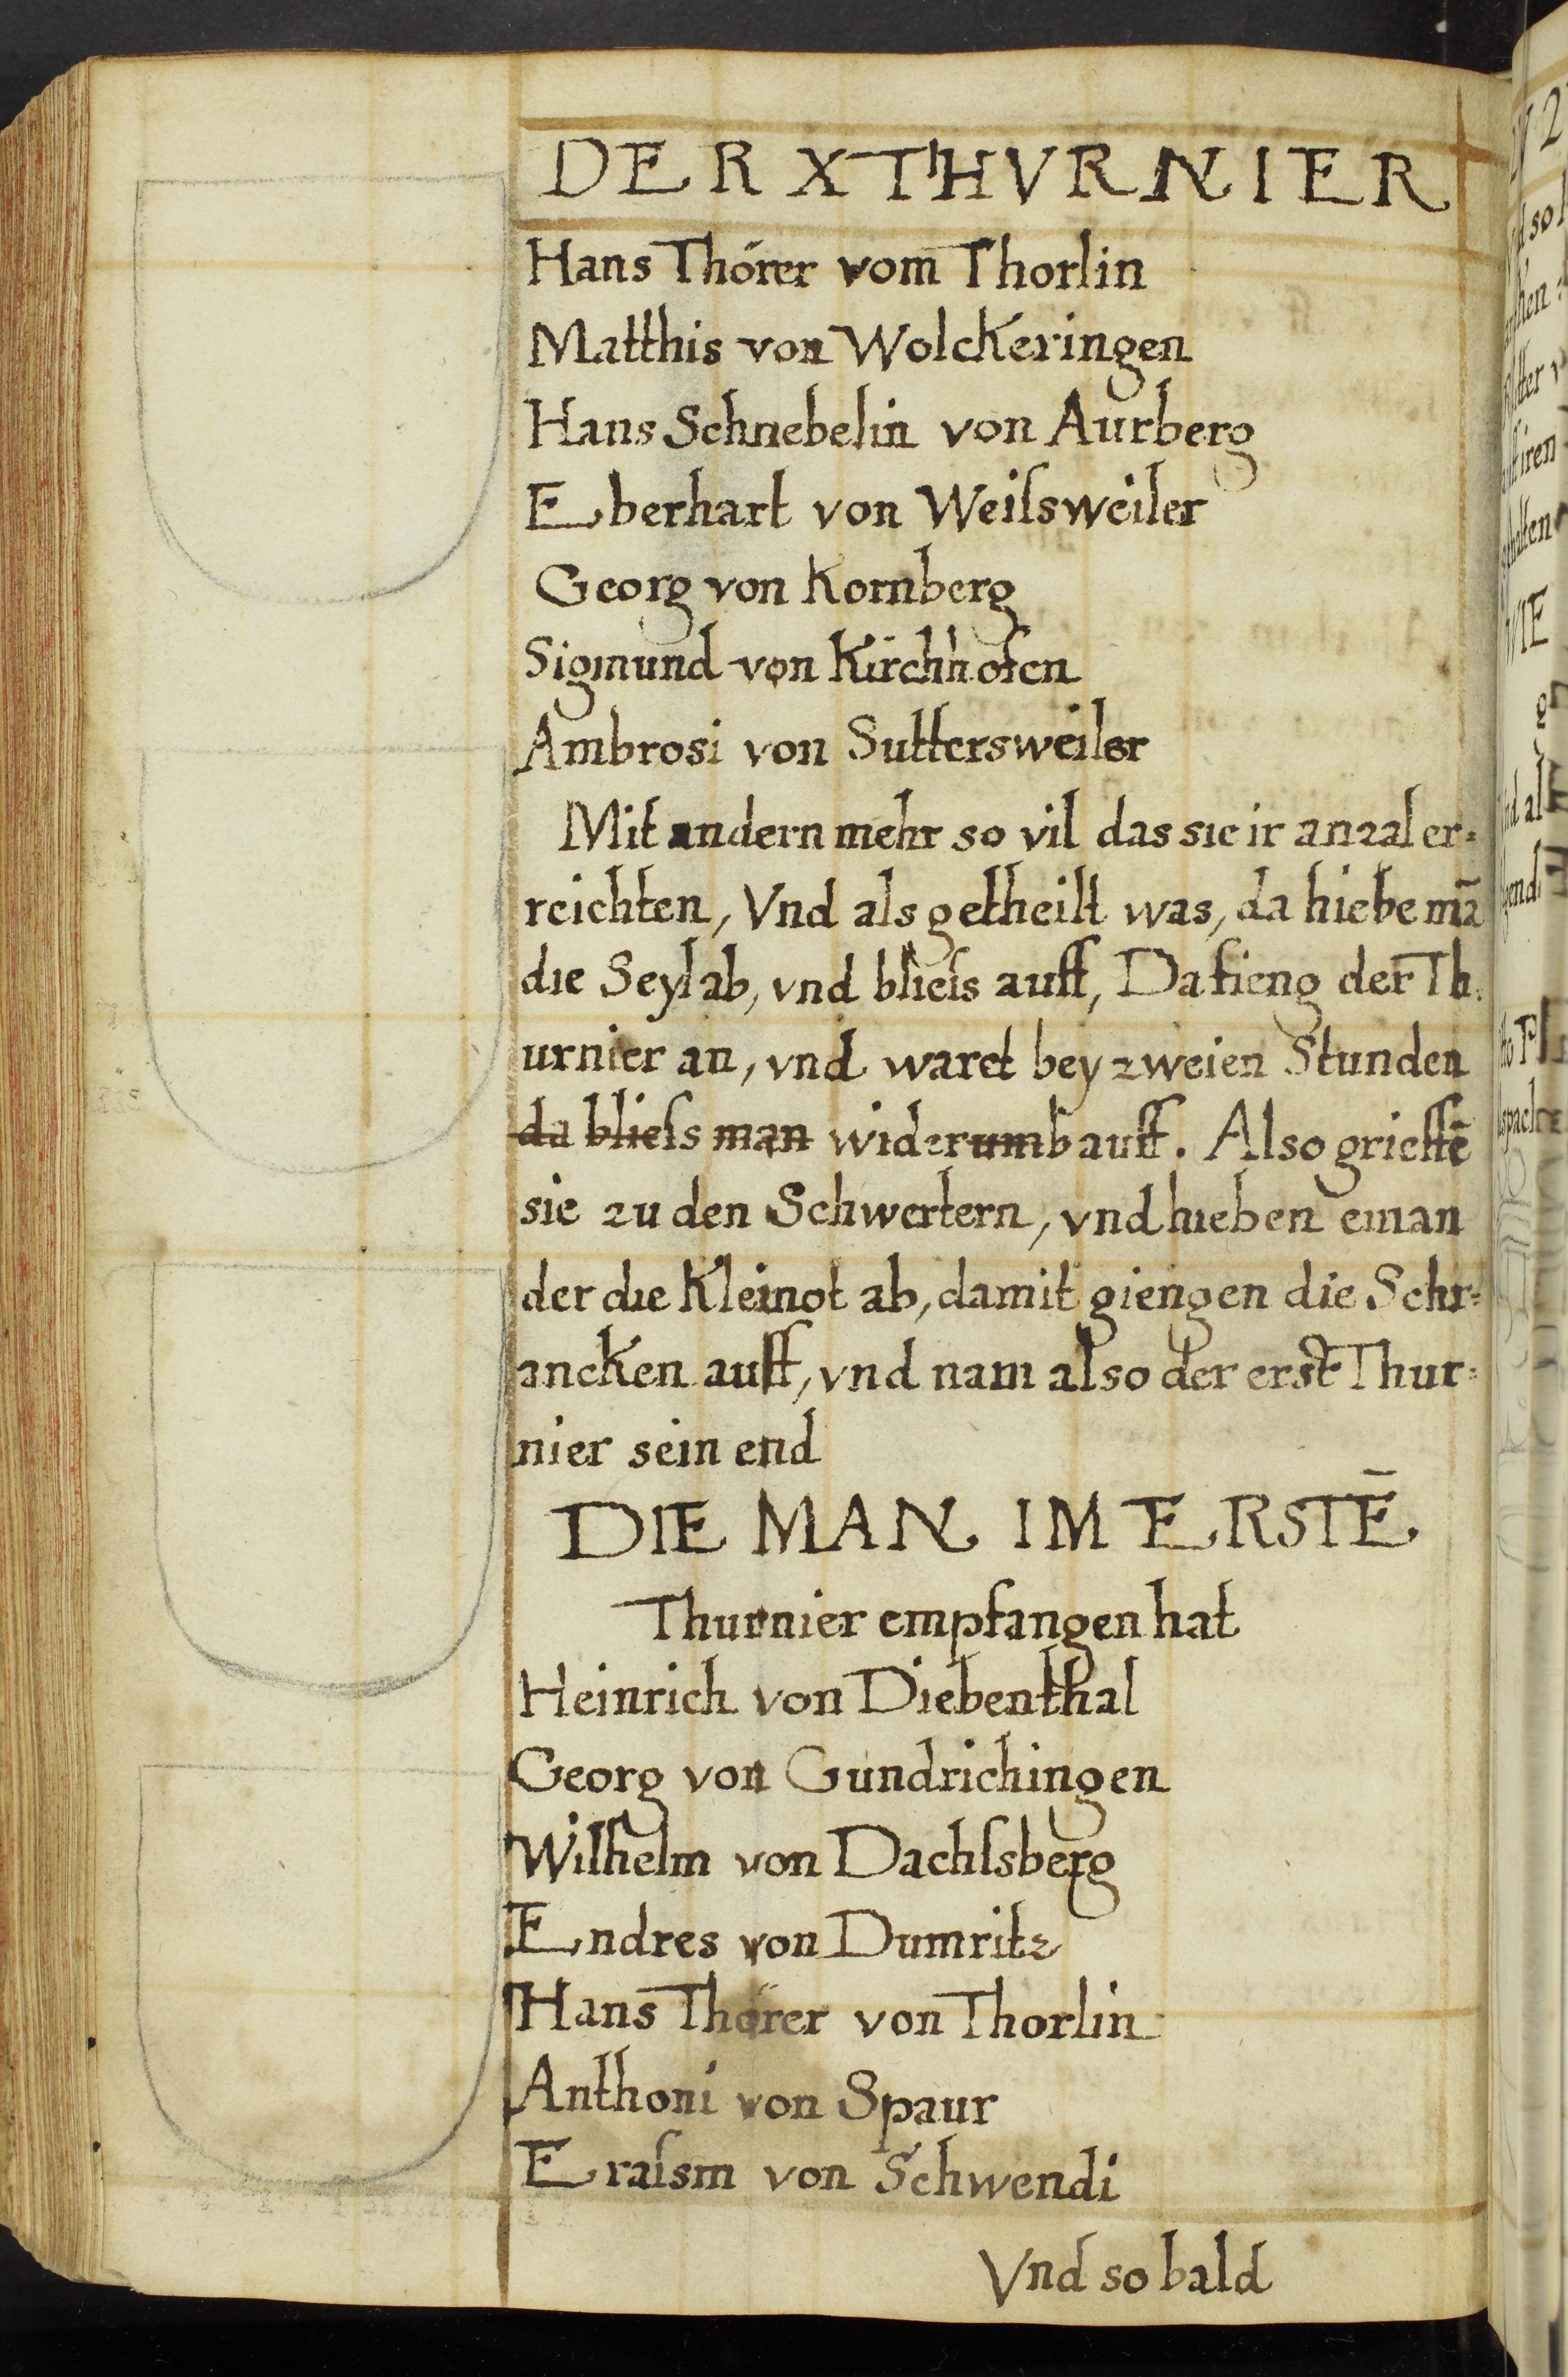 DER X THVRNIER
Hans Thörer vom Thorlin
Matthis von Wolckeringen
Hans Schnebelin von Aurberg
Eberhart von Weiſsweiler
Georg von Kornberg
Sigmund von Kirchhofen
Ambrosi von Suttersweiler
Mit andern mehr so vil das sie ir anzal er=
reichten, Vnd als getheilt was, da hiebe mā
die Seyl ab, vnd blieſs auff, Da fieng der Th=
urnier an, vnd waret bey zweien Stunden
da blieſs man widerumb auff. Also grieffē
sie zu den Schwertern, vnd hieben einan
der die Kleinot ab, damit giengen die Schr=
ancken auff, vnd nam also der erst Thur=
nier sein end
DIE MAN IM ERSTĒ
Thurnier empfangen hat
Heinrich von Diebenthal
Georg von Gundrichingen
Wilhelm von Dachſsberg
Endres von Dumritz
Hans Thörer von Thorlin
Anthoni von Spaur
Eraſsm von Schwendi
Vnd so bald